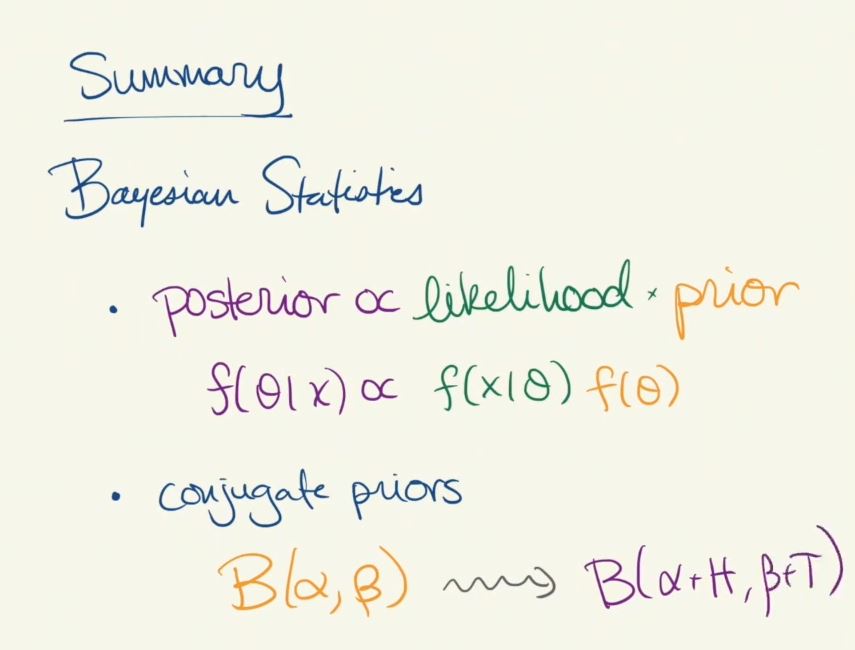 Summary
Bayesian Statistics
• posterior ∝ likelihood × prior
f(θ|x) ∝ f(x|θ) f(θ)
• conjugate priors
B(α, β) ⟿ B(α+H, β+T)